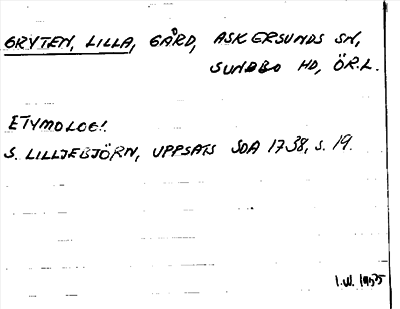 GRYTEN, LILLA, GÅRD, ASKERSUNDS SN,
SUNDBO HD, ÖR.L.
ETYMOLOGI.
S. LILLJEBJÖRN, UPPSATS SOA 1738, S. 19.
I.W. 1935